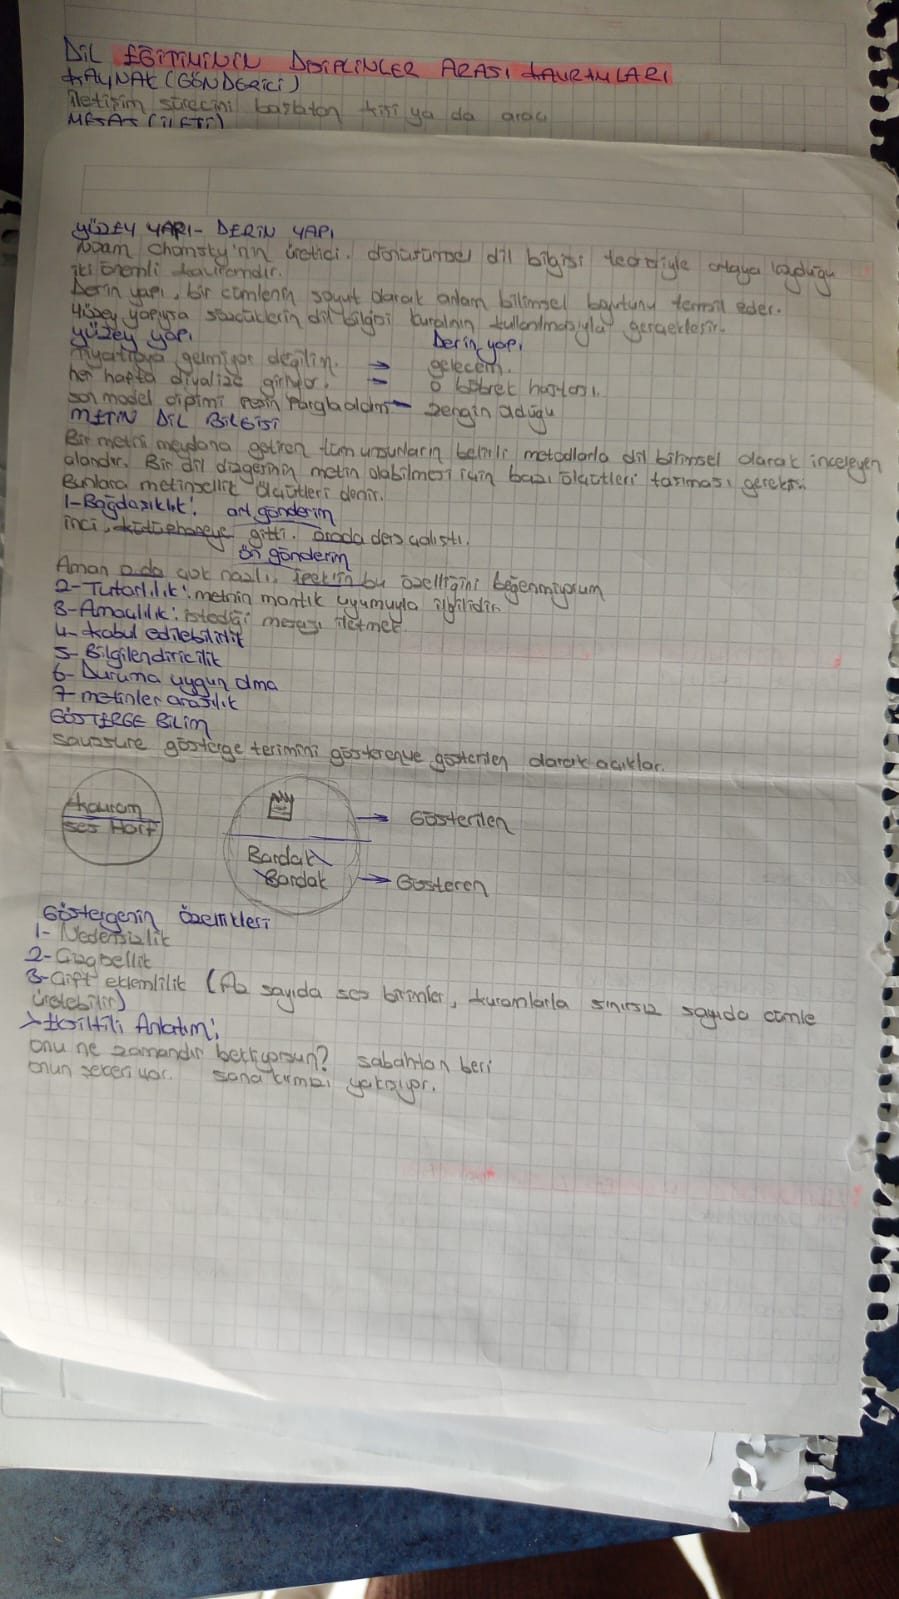 DİL EĞİTİMİNİN DİSİPLİNLER ARASI KAVRAMLARI
KAYNAK (GÖNDERİCİ)
iletişim sürecini başlatan kişi ya da araç
MESAJ (İLETİ)
YÜZEY YAPI - DERİN YAPI
Noam Chomsky'nin üretici. dönüşümsel dil bilgisi teorisiyle ortaya koyduğu
iki önemli kavramdır.
Derin yapı, bir cümlenin soyut olarak anlam bilimsel boyutunu temsil eder.
Yüzey yapıysa sözcüklerin dil bilgisi kuralının kullanılmasıyla gerçekleşir.
Yüzey yapı Derin yapı
Tiyatroya gelmiyor değilim. ⇒ gelecem.
her hafta diyalize giriyor. = o böbrek hastası.
son model cipimi peşin parayla aldım - zengin olduğu
METİN DİL BİLGİSİ
Bir metni meydana getiren tüm unsurların belirli metodlarla dil bilimsel olarak inceleyen
alandır. Bir dil dizgesinin metin olabilmesi için bazı ölçütleri taşıması gerekir.
Bunlara metinsellik ölçütleri denir.
1-Bağdaşıklık: art gönderim
inci, kütüphaneye gitti. orada ders çalıştı.
ön gönderim
Aman o da çok nazlı. İpek'in bu özelliğini beğenmiyorum
2-Tutarlılık: metnin mantık uyumuyla ilgilidir
3-Amaçlılık: istediği mesajı iletmek
4-kabul edilebilirlik
5-Bilgilendiricilik
6-Duruma uygun olma
7-metinler arasılık
GÖSTERGE BİLİM
Saussure gösterge terimini gösteren ve gösterilen olarak açıklar.
Kavram
ses Harf
→ Gösterilen
Bardak
Bardak → Gösteren
Göstergenin özellikleri
1- Nedensizlik
2-Çizgisellik
3-Çift eklemlilik (Az sayıda ses birimler, kuramlarla sınırsız sayıda cümle
üretebilir)
>Eksiltili Anlatım:
onu ne zamandır bekliyorsun? sabahtan beri
onun şekeri var. sana kırmızı yakışıyor.